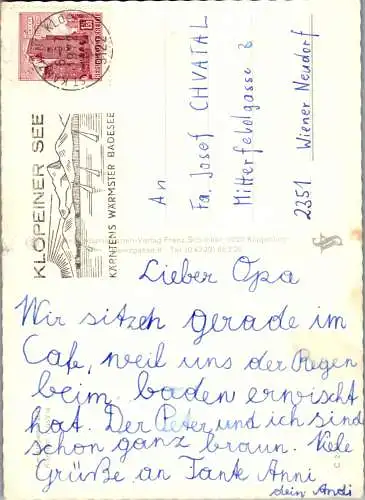 KLOPEINER SEE
KÄRNTENS WÄRMSTER BADESEE
An
Fa. Josef CHVATAL
Mitterfeldgasse 2
2351 Wiener Neudorf
Lieber Opa
Wir sitzen gerade im
Cafe, weil uns der Regen
beim baden erwischt
hat. Der Peter und ich sind
schon ganz braun. Viele
Grüße an Tante Anni
dein Andi